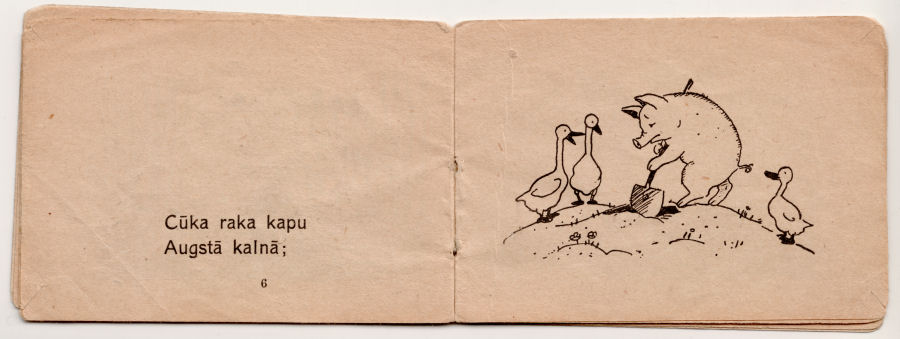 Cūka raka kapu
Augstā kalnā;
6